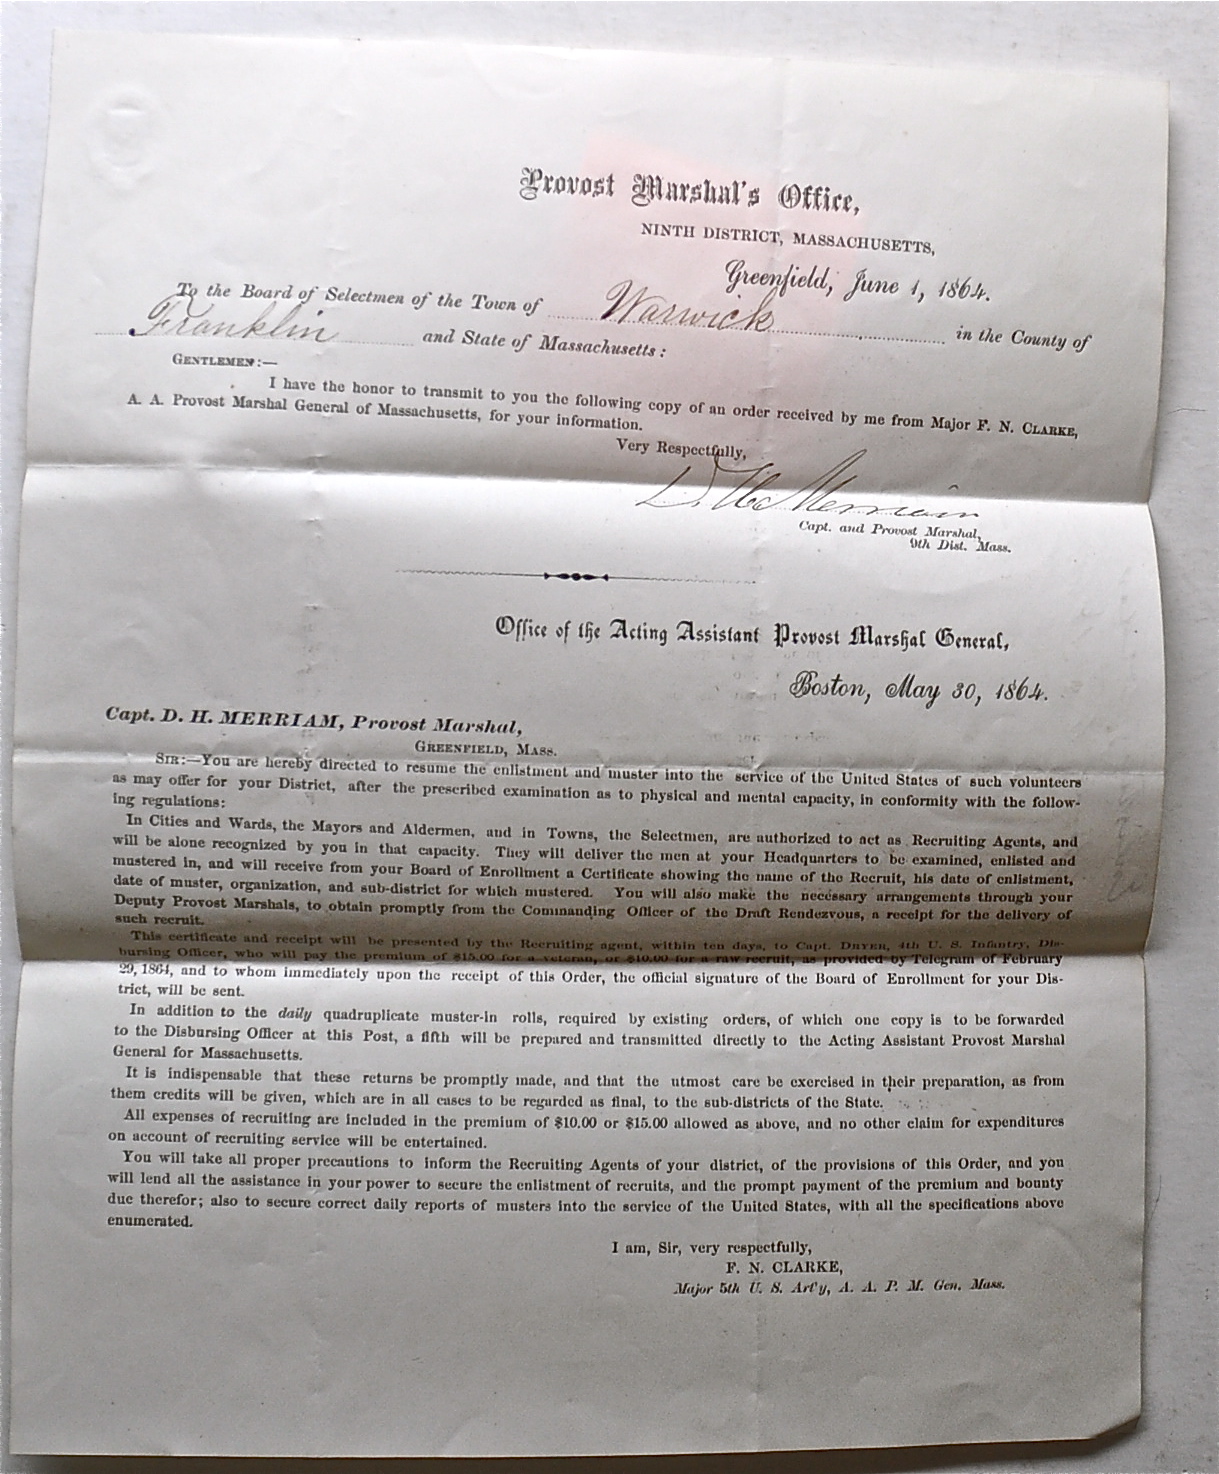 Provost Marshal's Office,
NINTH DISTRICT, MASSACHUSETTS,
Greenfield, June 1, 1864.
To the Board of Selectmen of the Town of Warwick in the County of
Franklin and State of Massachusetts:
GENTLEMEN:—
I have the honor to transmit to you the following copy of an order received by me from Major F. N. CLARKE,
A. A. Provost Marshal General of Massachusetts, for your information.
Very Respectfully,
D. H. Merriam
Capt. and Provost Marshal,
9th Dist. Mass.
Office of the Acting Assistant Provost Marshal General,
Boston, May 30, 1864.
Capt. D. H. MERRIAM, Provost Marshal,
GREENFIELD, MASS.
SIR:—You are hereby directed to resume the enlistment and muster into the service of the United States of such volunteers
as may offer for your District, after the prescribed examination as to physical and mental capacity, in conformity with the follow-
ing regulations:
In Cities and Wards, the Mayors and Aldermen, and in Towns, the Selectmen, are authorized to act as Recruiting Agents, and
will be alone recognized by you in that capacity. They will deliver the men at your Headquarters to be examined, enlisted and
mustered in, and will receive from your Board of Enrollment a Certificate showing the name of the Recruit, his date of enlistment,
date of muster, organization, and sub-district for which mustered. You will also make the necessary arrangements through your
Deputy Provost Marshals, to obtain promptly from the Commanding Officer of the Draft Rendezvous, a receipt for the delivery of
such recruit.
This certificate and receipt will be presented by the Recruiting agent, within ten days, to Capt. DRYER, 4th U. S. Infantry, Dis-
bursing Officer, who will pay the premium of $15.00 for a veteran, or $10.00 for a raw recruit, as provided by Telegram of February
29, 1864, and to whom immediately upon the receipt of this Order, the official signature of the Board of Enrollment for your Dis-
trict, will be sent.
In addition to the daily quadruplicate muster-in rolls, required by existing orders, of which one copy is to be forwarded
to the Disbursing Officer at this Post, a fifth will be prepared and transmitted directly to the Acting Assistant Provost Marshal
General for Massachusetts.
It is indispensable that these returns be promptly made, and that the utmost care be exercised in their preparation, as from
them credits will be given, which are in all cases to be regarded as final, to the sub-districts of the State.
All expenses of recruiting are included in the premium of $10.00 or $15.00 allowed as above, and no other claim for expenditures
on account of recruiting service will be entertained.
You will take all proper precautions to inform the Recruiting Agents of your district, of the provisions of this Order, and you
will lend all the assistance in your power to secure the enlistment of recruits, and the prompt payment of the premium and bounty
due therefor; also to secure correct daily reports of musters into the service of the United States, with all the specifications above
enumerated.
I am, Sir, very respectfully,
F. N. CLARKE,
Major 5th U. S. Art'y, A. A. P. M. Gen. Mass.